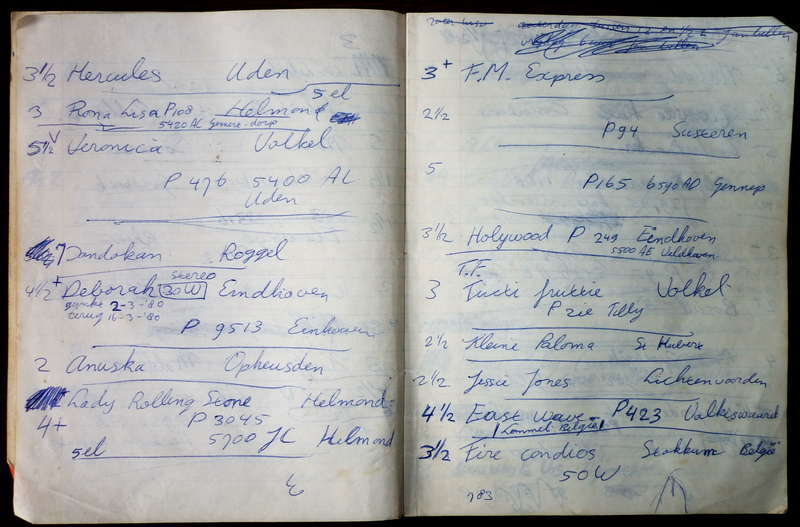 3 1/2 Hercules Uden
sel
3 Rona Lisa P108 Helmond
5420 AC Gemert-dorp
5 1/2 V Veronica Volkel
P 476 5400 AL
Uden
7 Sandokan Roggel
4 1/2 + Deborah stereo 30W Eindhoven
2-3-'80
terug 16-3-'80
P 9513 Einhoven
2 Anuska Opheusden
Lady Rolling Stone Helmond
4+ P 3045
5700 JC Helmond
sel
3+ F.M. Express
2 1/2
P94 Susteren
5
P165 6590 AD Gennep
3 1/2 Holywood P 249 Eindhoven
5500 AE Veldhoven
T.F.
3 Tutti fruttie Volkel
P zie Tilly
2 1/2 Kleine Paloma St Hubert
2 1/2 Jessie Jones Lichtenvoorden
4 1/2 East wave P423 Valkiswaard
Lommel België
3 1/2 Fire condios Stokkum België
50W
783